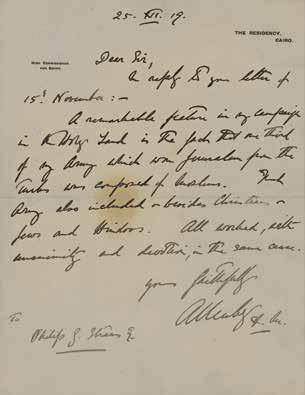 25. XI. 19.
THE RESIDENCY,
CAIRO.
HIGH COMMISSIONER
FOR EGYPT.
Dear Sir,
In reply to your letter of
15th November:-
A remarkable feature in my campaign
in the Holy Land is the fact that one third
of my Army which won Jerusalem from the
Turks was composed of Muslims. That
Army also included - besides Christians -
Jews and Hindoos. All worked, with
unanimity and devotion, in the same cause.
yours faithfully
Allenby
To
Philip G.